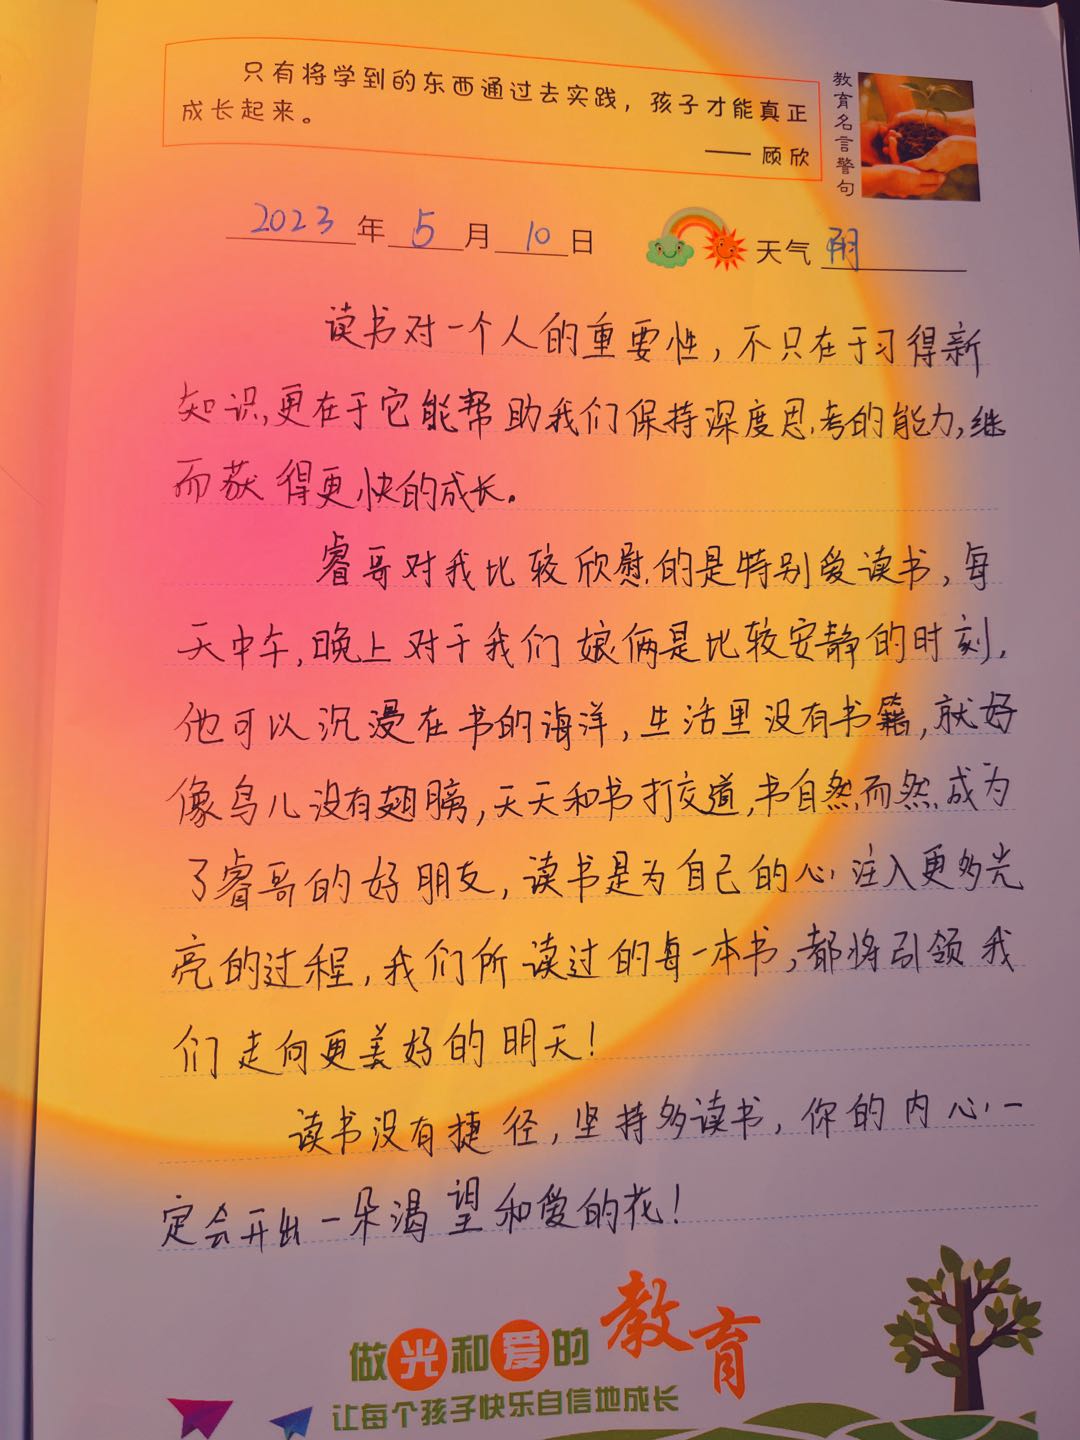 只有将学到的东西通过去实践，孩子才能真正
成长起来。
—— 顾欣
教育名言警句
2023年5月10日 天气 阴
读书对一个人的重要性，不只在于习得新
知识，更在于它能帮助我们保持深度思考的能力，继
而获得更快的成长。
睿哥对我比较欣慰的是特别爱读书，每
天中午，晚上对于我们娘俩是比较安静的时刻，
他可以沉浸在书的海洋，生活里没有书籍，就好
像鸟儿没有翅膀，天天和书打交道，书自然而然成为
了睿哥的好朋友，读书是为自己的心注入更多光
亮的过程，我们所读过的每一本书，都将引领我
们走向更美好的明天！
读书没有捷径，坚持多读书，你的内心一
定会开出一朵渴望和爱的花！
做光和爱的教育
让每个孩子快乐自信地成长